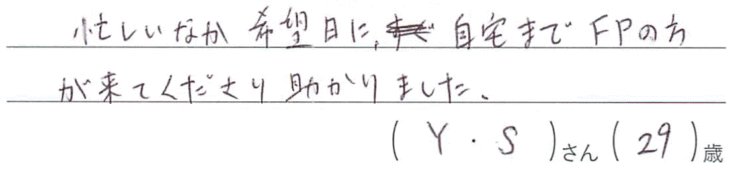 忙しいなか 希望日に、自宅まで FPの方
が来てくださり 助かりました。
( Y・S )さん ( 29 )歳